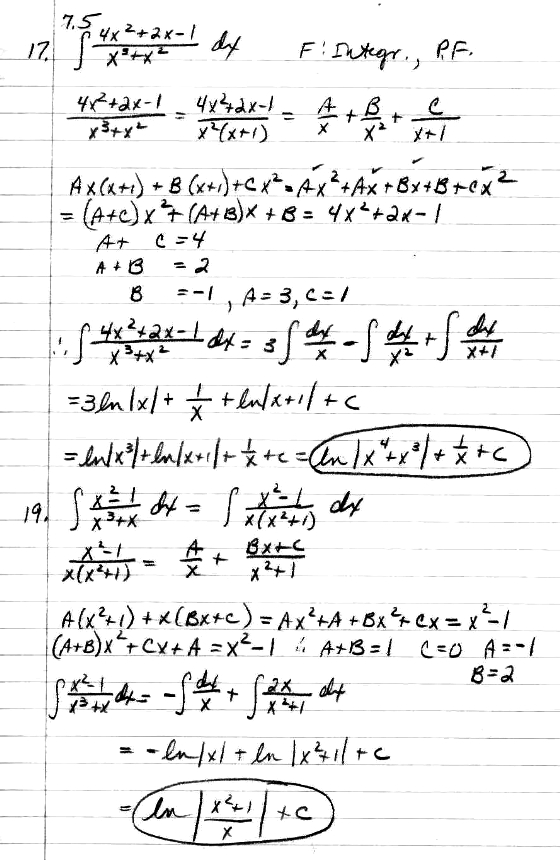 7.5
17. ∫ (4x²+2x-1)/(x³+x²) dx F: Integr., P.F.
(4x²+2x-1)/(x³+x²) = (4x²+2x-1)/(x²(x+1)) = A/x + B/x² + C/(x+1)
Ax(x+1) + B(x+1) + Cx² = Ax² + Ax + Bx + B + Cx²
= (A+C)x² + (A+B)x + B = 4x² + 2x - 1
A + C = 4
A + B = 2
B = -1, A = 3, C = 1
∴ ∫ (4x²+2x-1)/(x³+x²) dx = 3∫ dx/x - ∫ dx/x² + ∫ dx/(x+1)
= 3ln|x| + 1/x + ln|x+1| + C
= ln|x³| + ln|x+1| + 1/x + C = ln|x⁴+x³| + 1/x + C
19. ∫ (x²-1)/(x³+x) dx = ∫ (x²-1)/(x(x²+1)) dx
(x²-1)/(x(x²+1)) = A/x + (Bx+C)/(x²+1)
A(x²+1) + x(Bx+C) = Ax² + A + Bx² + Cx = x²-1
(A+B)x² + Cx + A = x²-1 ∴ A+B=1 C=0 A=-1
B=2
∫ (x²-1)/(x³+x) dx = -∫ dx/x + ∫ 2x/(x²+1) dx
= -ln|x| + ln|x²+1| + C
= ln|(x²+1)/x| + C